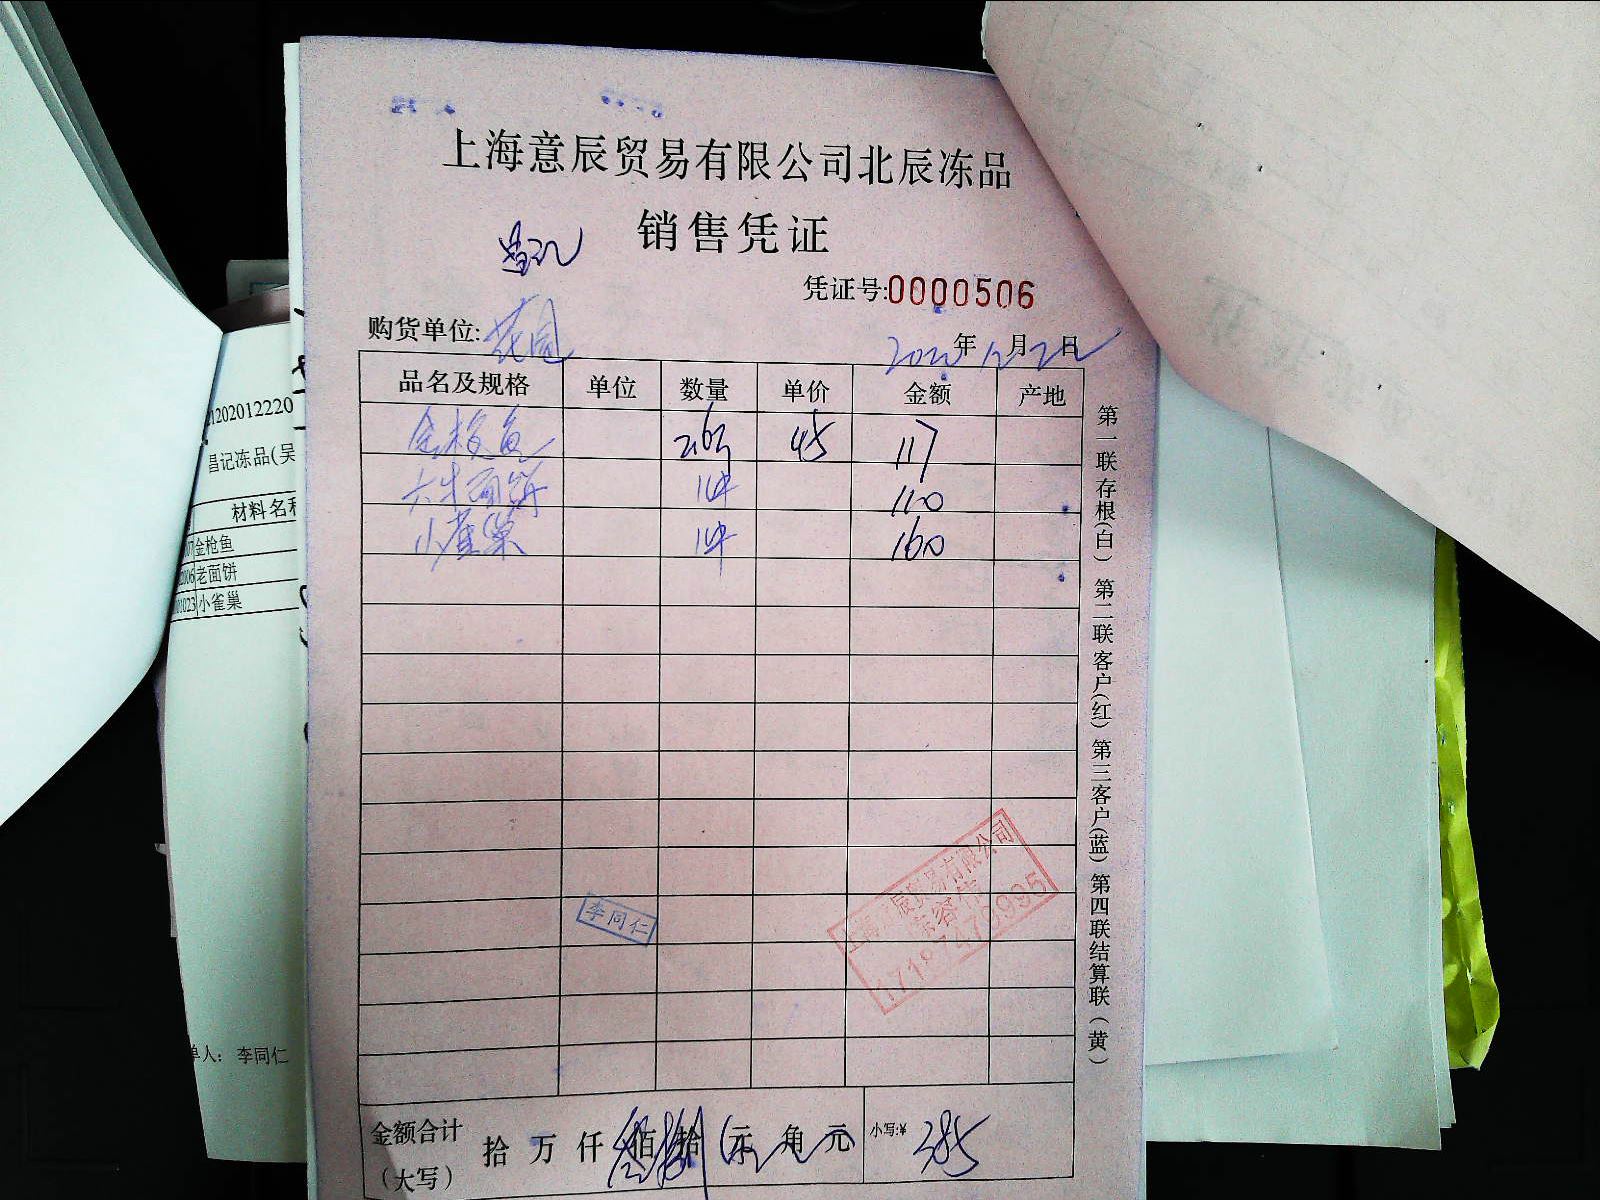 上海意辰贸易有限公司北辰冻品
销售凭证
昌记
凭证号:0000506
购货单位: 花园
2020年12月22日
品名及规格 单位 数量 单价 金额 产地
金枪鱼 2.6 45 117
面饼 1件 110
小雀巢 1件 160
李同仁
上海 辰贸易有限公司
金额合计
(大写)
拾 万 仟 佰 拾 元 角 元
小写:¥ 385
第一联存根(白) 第二联客户(红) 第三客户(蓝) 第四联结算联(黄)
1202012220
昌记冻品(吴
材料名称
金枪鱼
006 老面饼
01023 小雀巢
单人: 李同仁